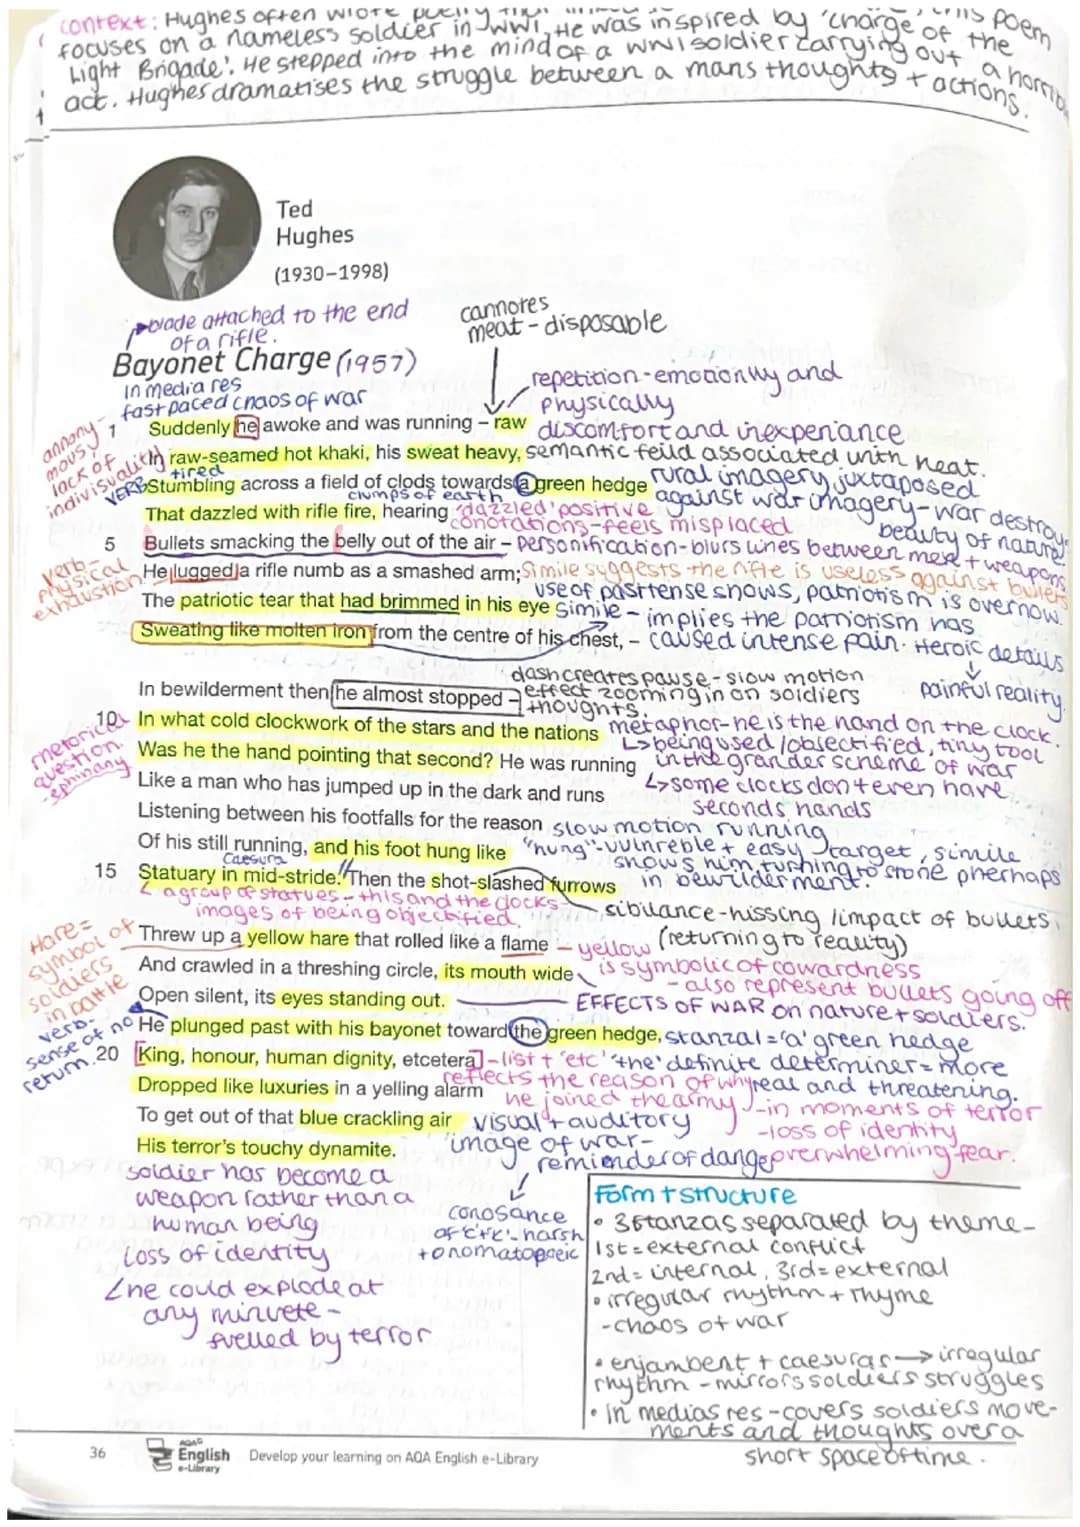 context: Hughes often wrote poetry this poem
focuses on a nameless soldier in WW1, He was inspired by 'charge of the
Light Brigade'. He stepped into the mind of a WW1 soldier carrying out a horrib
act. Hughes dramatises the struggle between a mans thoughts + actions.
Ted
Hughes
(1930–1998)
blade attached to the end
of a rifle.
cannotes
meat - disposable
Bayonet Charge (1957)
in media res
fast paced chaos of war
repetition - emotionally and
physically
discomfort and inexperiance
annony-
mous,
lack of
indivisuality
1 Suddenly he awoke and was running – raw
In raw-seamed hot khaki, his sweat heavy, semantic feild associated with heat.
tired
VERB
Stumbling across a field of clods towards a green hedge
clumps of earth
rural imagery juxtaposed
against war imagery - war destroys
beauty of nature.
That dazzled with rifle fire, hearing
'dazzled' positive
conotations - feels misplaced
5 Bullets smacking the belly out of the air – personification - blurs lines between men + weapons
verb -
physical
exhaustion
He lugged a rifle numb as a smashed arm; Simile suggests the rifle is useless against bullets
use of past tense shows, patriotism is over now.
The patriotic tear that had brimmed in his eye simile - implies the patriotism has
Sweating like molten iron from the centre of his chest, – caused intense pain. Heroic details
painful reality.
dash creates pause - slow motion
effect zooming in on soldiers
thoughts.
In bewilderment then he almost stopped –
10 In what cold clockwork of the stars and the nations metaphor - he is the hand on the clock.
being used / objectified, tiny tool
in the grander scheme of war
rhetorical
question.
Was he the hand pointing that second? He was running
some clocks don't even have
seconds hands
Like a man who has jumped up in the dark and runs
Listening between his footfalls for the reason slow motion running
Of his still running, and his foot hung like "hung" - vulnreble + easy target, simile
shows him turning to stone pherhaps
in bewilderment.
Caesura
15 Statuary in mid-stride. Then the shot-slashed furrows
a group of statues - this and the clocks
images of being objectified.
sibilance - hissing / impact of bullets,
(returning to reality)
Hare =
symbol of
soldiers
in battle
Threw up a yellow hare that rolled like a flame - yellow
is symbolic of cowardness
- also represent bullets going off
And crawled in a threshing circle, its mouth wide
Open silent, its eyes standing out. EFFECTS OF WAR on nature + soldiers.
verb -
sense of no
return.
He plunged past with his bayonet toward the green hedge, stanza 1 = 'a' green hedge
'the' definite determiner = more
real and threatening.
20 King, honour, human dignity, etcetera - list + 'etc'
reflects the reason of why
he joined the army
Dropped like luxuries in a yelling alarm
- in moments of terror
- loss of identity
overwhelming fear.
To get out of that blue crackling air visual + auditory
image of war -
reminder of danger
His terror's touchy dynamite.
soldier has become a
weapon rather than a
human being
loss of identity
he could explode at
any minuete -
fuelled by terror
conosance
of 'c+k' - harsh
+ onomatopoeic
Form + structure
• 3 stanzas separated by theme -
1st = external conflict
2nd = internal, 3rd = external
• irregular rhythm + rhyme
- chaos of war
• enjambent + caesuras → irregular
rhythm - mirrors soldiers struggles
• in medias res - covers soldiers move-
ments and thoughts over a
short space of time.
36
AQA
English
e-Library
Develop your learning on AQA English e-Library